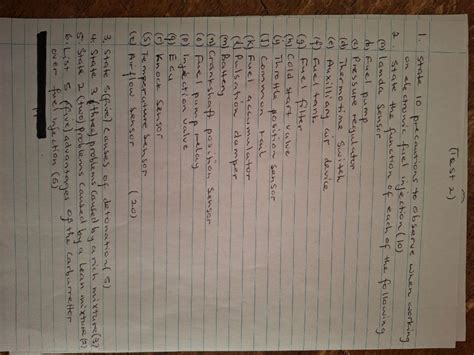 (Test 2)
1. State 10 precautions to observe when working
on electronic fuel injection (10)
2. State the function of each of the following
(a) landa sensor
(b) Fuel pump
(c) Pressure regulator
(d) Thermotime switch
(e) Auxillary air device
(f) Fuel tank
(g) Fuel filter
(h) Cold start valve
(i) Throttle position sensor
(j) Common rail
(k) Fuel accumulator
(l) Pulsation damper
(m) Battery
(n) Crankshaft position sensor
(o) Fuel pump relay
(p) Injection valve
(q) Ecu
(r) Knock sensor
(s) Temperature sensor
(t) Airflow sensor (20)
3. State 5 (five) causes of detonation (5)
4. State 3 (three) problems caused by a rich mixture (3)
5. State 2 (two) problems caused by a lean mixture (2)
6. List 5 (five) advantages of the carburettor
over fuel injection (5)